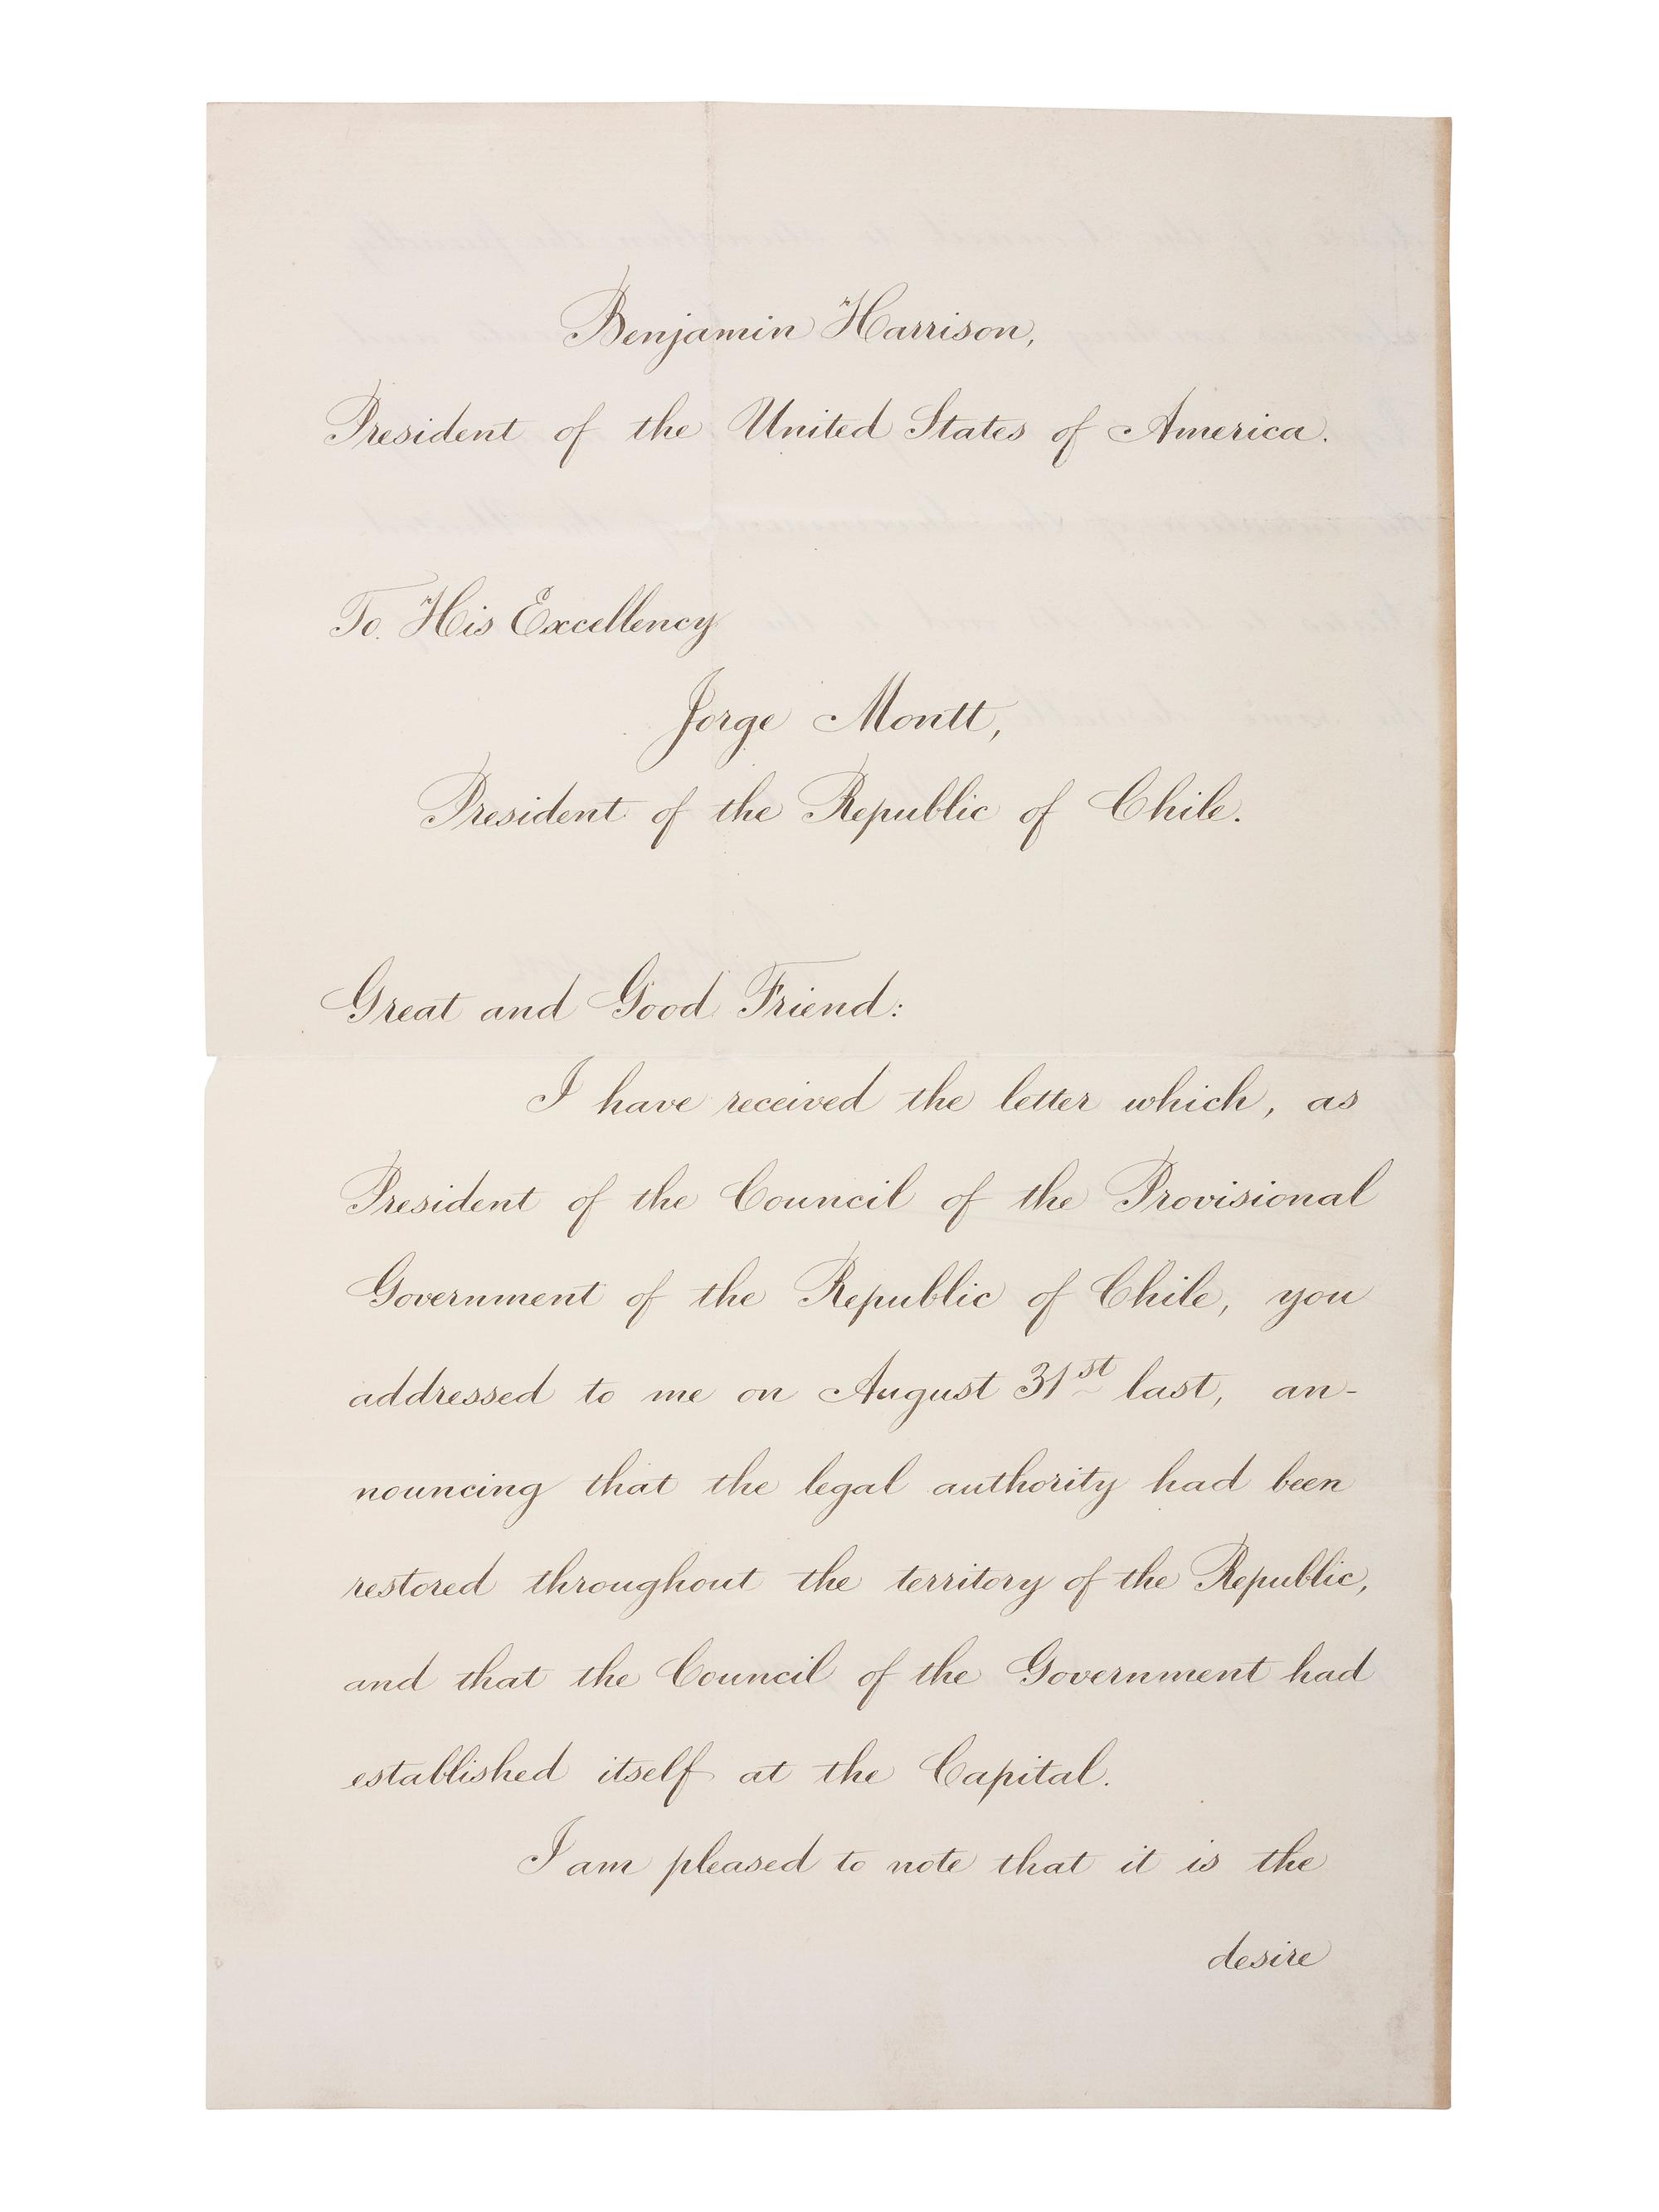 Benjamin Harrison,
President of the United States of America.
To His Excellency
Jorge Montt,
President of the Republic of Chile.
Great and Good Friend:
I have received the letter which, as
President of the Council of the Provisional
Government of the Republic of Chile, you
addressed to me on August 31st last, an-
nouncing that the legal authority had been
restored throughout the territory of the Republic,
and that the Council of the Government had
established itself at the Capital.
I am pleased to note that it is the
desire